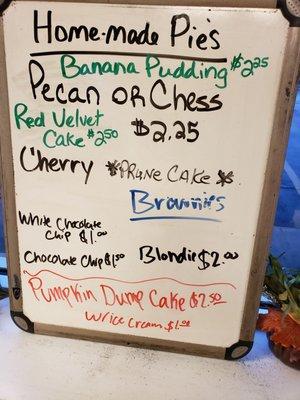 Home-made Pie's
Banana Pudding $2.25
Pecan or Chess
Red Velvet
Cake $2.50
$2.25
Cherry
*PRUNE CAKE*
Brownies
White Chocolate
Chip $1.00
Chocolate Chip $1.50
Blondie $2.00
Pumpkin Dump Cake $2.50
w/ice cream $1.00